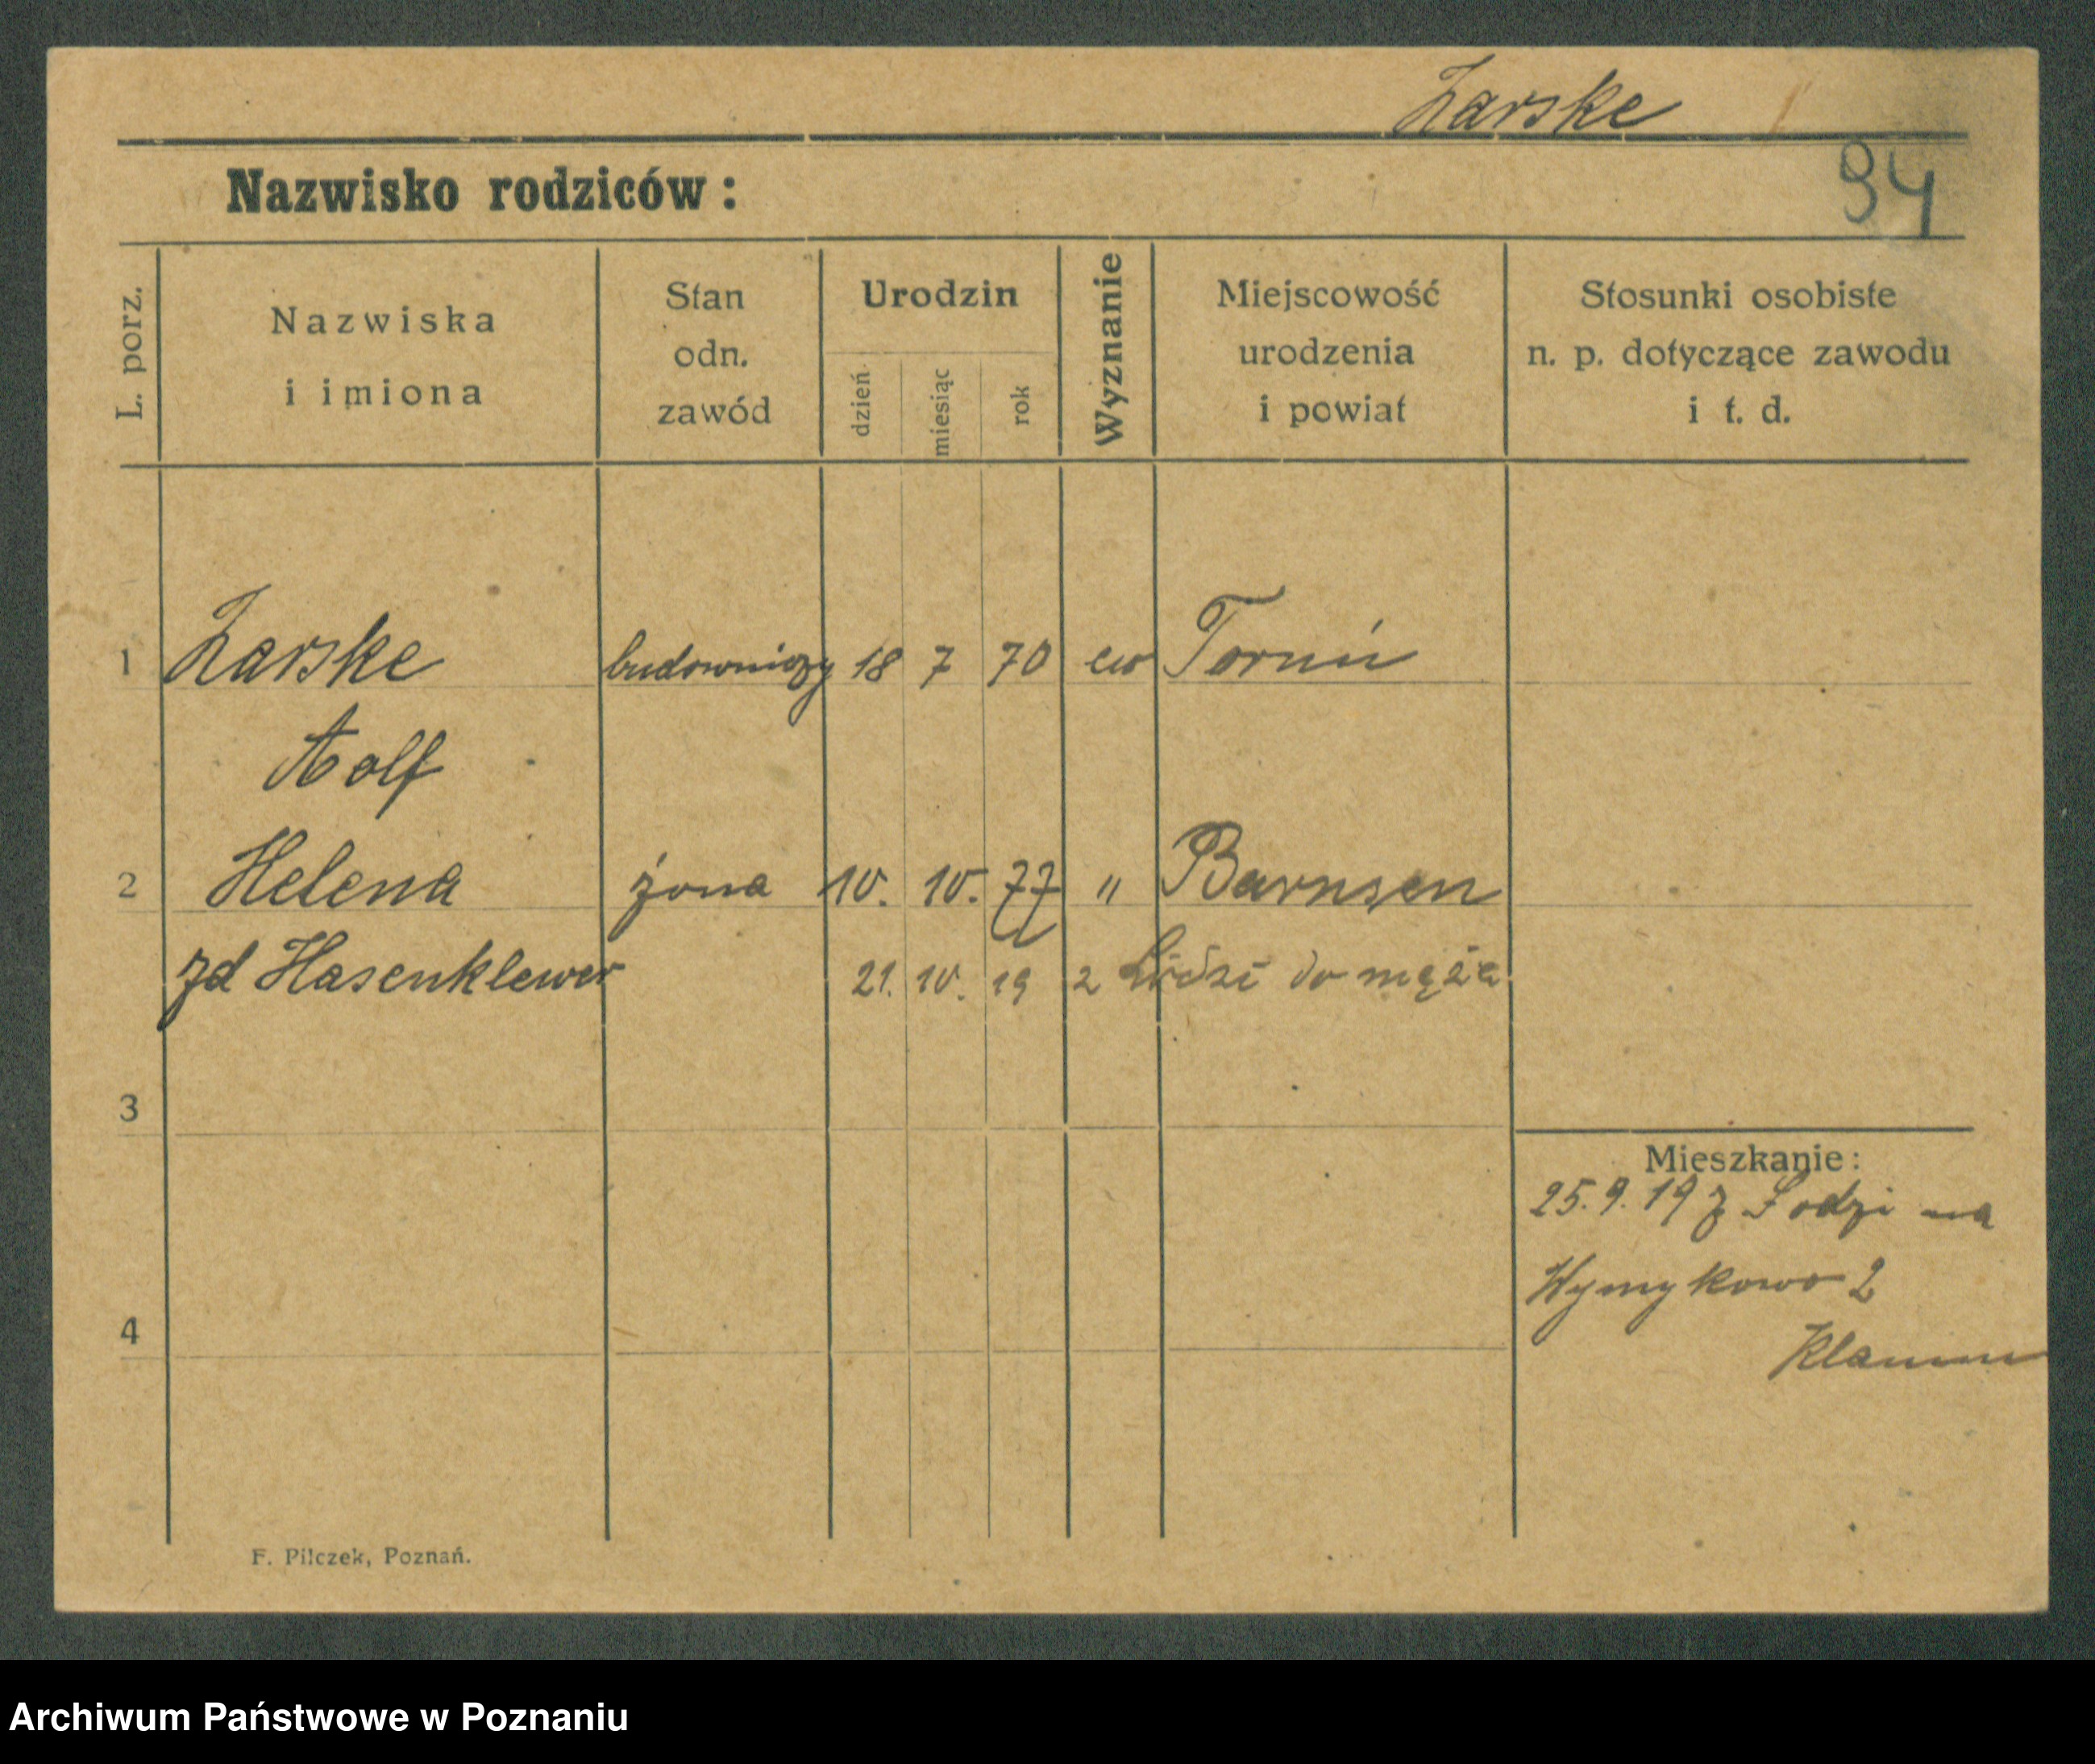 Zarske
94
Nazwisko rodziców:
L. porz.
Nazwiska
i imiona
Stan
odn.
zawód
Urodzin
dzień
miesiąc
rok
Wyznanie
Miejscowość
urodzenia
i powiat
Stosunki osobiste
n. p. dotyczące zawodu
i t. d.
1 Zarske budowniczy 18 7 70 ew Toruń
Adolf
2 Helena żona 10. 10. 77 " Barnsen
zd Hasenklewer 21. 10. 19 2 Łódzi do męża
3
Mieszkanie:
25. 9. 19 z Łodzi na
Wymykowo 2
Klamm
4
F. Pilczek, Poznań.
Archiwum Państwowe w Poznaniu